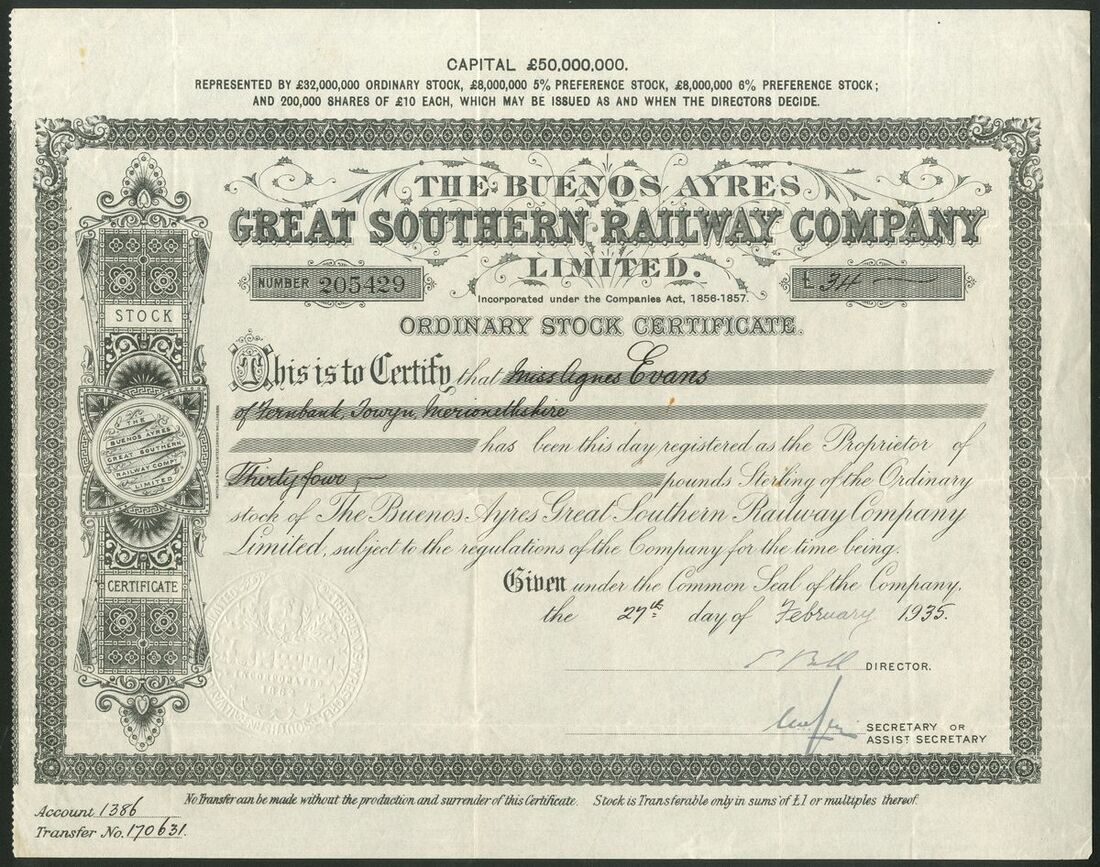 CAPITAL £50,000,000.
REPRESENTED BY £32,000,000 ORDINARY STOCK, £8,000,000 5% PREFERENCE STOCK, £8,000,000 6% PREFERENCE STOCK;
AND 200,000 SHARES OF £10 EACH, WHICH MAY BE ISSUED AS AND WHEN THE DIRECTORS DECIDE.
THE BUENOS AYRES
GREAT SOUTHERN RAILWAY COMPANY
LIMITED.
NUMBER 205429
£ 34
Incorporated under the Companies Act, 1856-1857.
ORDINARY STOCK CERTIFICATE.
STOCK
THE
BUENOS AYRES
GREAT SOUTHERN
RAILWAY COMPY
LIMITED
CERTIFICATE
This is to Certify that Miss Agnes Evans
of Fernbank, Towyn, Merionethshire
has been this day registered as the Proprietor of
Thirty four pounds Sterling of the Ordinary
stock of The Buenos Ayres Great Southern Railway Company
Limited, subject to the regulations of the Company for the time being.
Given under the Common Seal of the Company,
the 27th day of February 1935.
DIRECTOR.
SECRETARY OR
ASSIST SECRETARY
INCORPORATED
No Transfer can be made without the production and surrender of this Certificate. Stock is Transferable only in sums of £1 or multiples thereof.
Account 1386
Transfer No. 170631.